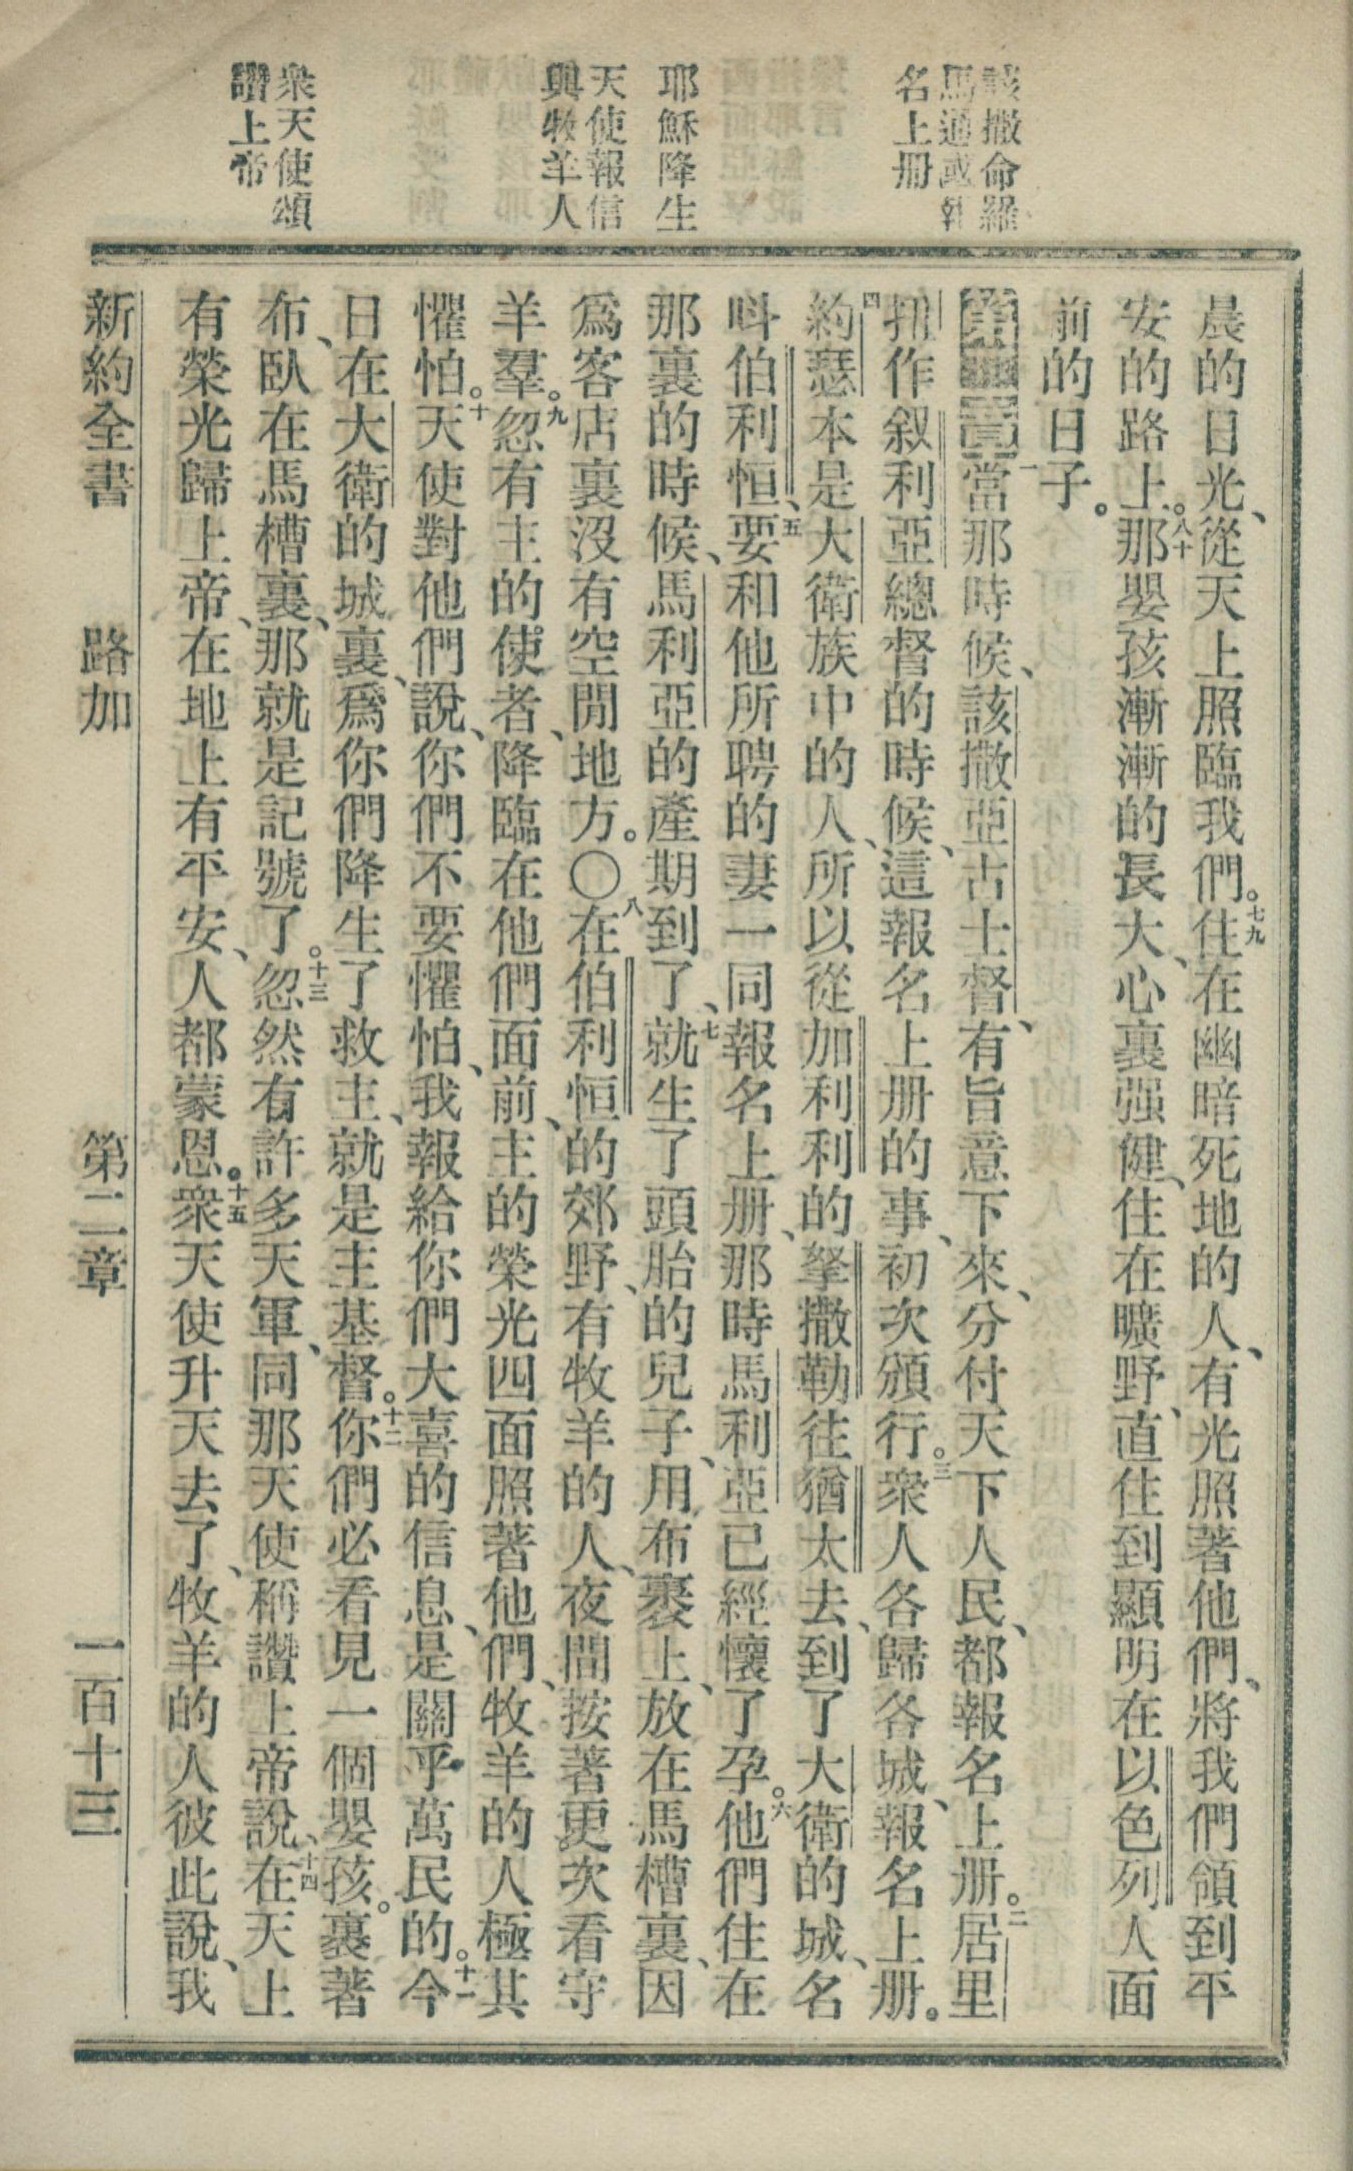 該撒命羅
馬通國報
名上册
耶穌降生
天使報信
與牧羊人
衆天使頌
讚上帝
晨的日光、從天上照臨我們。七九住在幽暗死地的人、有光照著他們、將我們領到平
安的路上。八十那嬰孩漸漸的長大、心裏强健、住在曠野、直住到顯明在以色列人面
前的日子。
第二章一當那時候、該撒亞古士督、有旨意下來、分付天下人民、都報名上册。二居里
扭作叙利亞總督的時候、這報名上册的事、初次頒行。三衆人各歸各城、報名上册。
四約瑟本是大衛族中的人、所以從加利利的拏撒勒往猶太去、到了大衛的城、名
呌伯利恒、五要和他所聘的妻一同報名上册、那時馬利亞已經懷了孕。六他們住在
那裏的時候、馬利亞的產期到了、七就生了頭胎的兒子、用布裹上、放在馬槽裏、因
爲客店裏沒有空閒地方。〇八在伯利恒的郊野、有牧羊的人、夜間按著更次看守
羊羣。九忽有主的使者、降臨在他們面前、主的榮光四面照著他們、牧羊的人極其
懼怕。十天使對他們說、你們不要懼怕、我報給你們大喜的信息、是關乎萬民的。十一今
日在大衛的城裏、爲你們降生了救主、就是主基督。十二你們必看見一個嬰孩。裹著
布、臥在馬槽裏、那就是記號了。十三忽然有許多天軍、同那天使稱讚上帝說、十四在天上
有榮光歸上帝、在地上有平安、人都蒙恩。十五衆天使升天去了、牧羊的人彼此說、我
新約全書 路加 第二章 一百十三